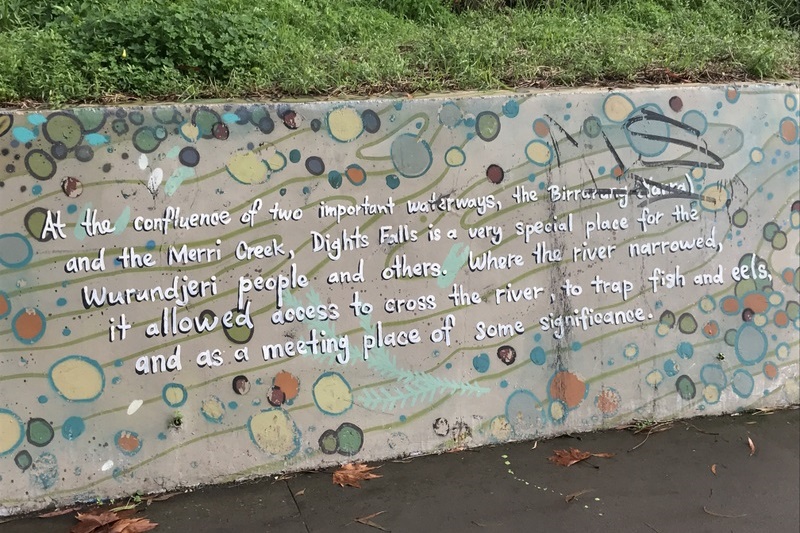 At the confluence of two important waterways, the Birrarung (Yarra)
and the Merri Creek, Dights Falls is a very special place for the
Wurundjeri people and others. Where the river narrowed,
it allowed access to cross the river, to trap fish and eels,
and as a meeting place of some significance.